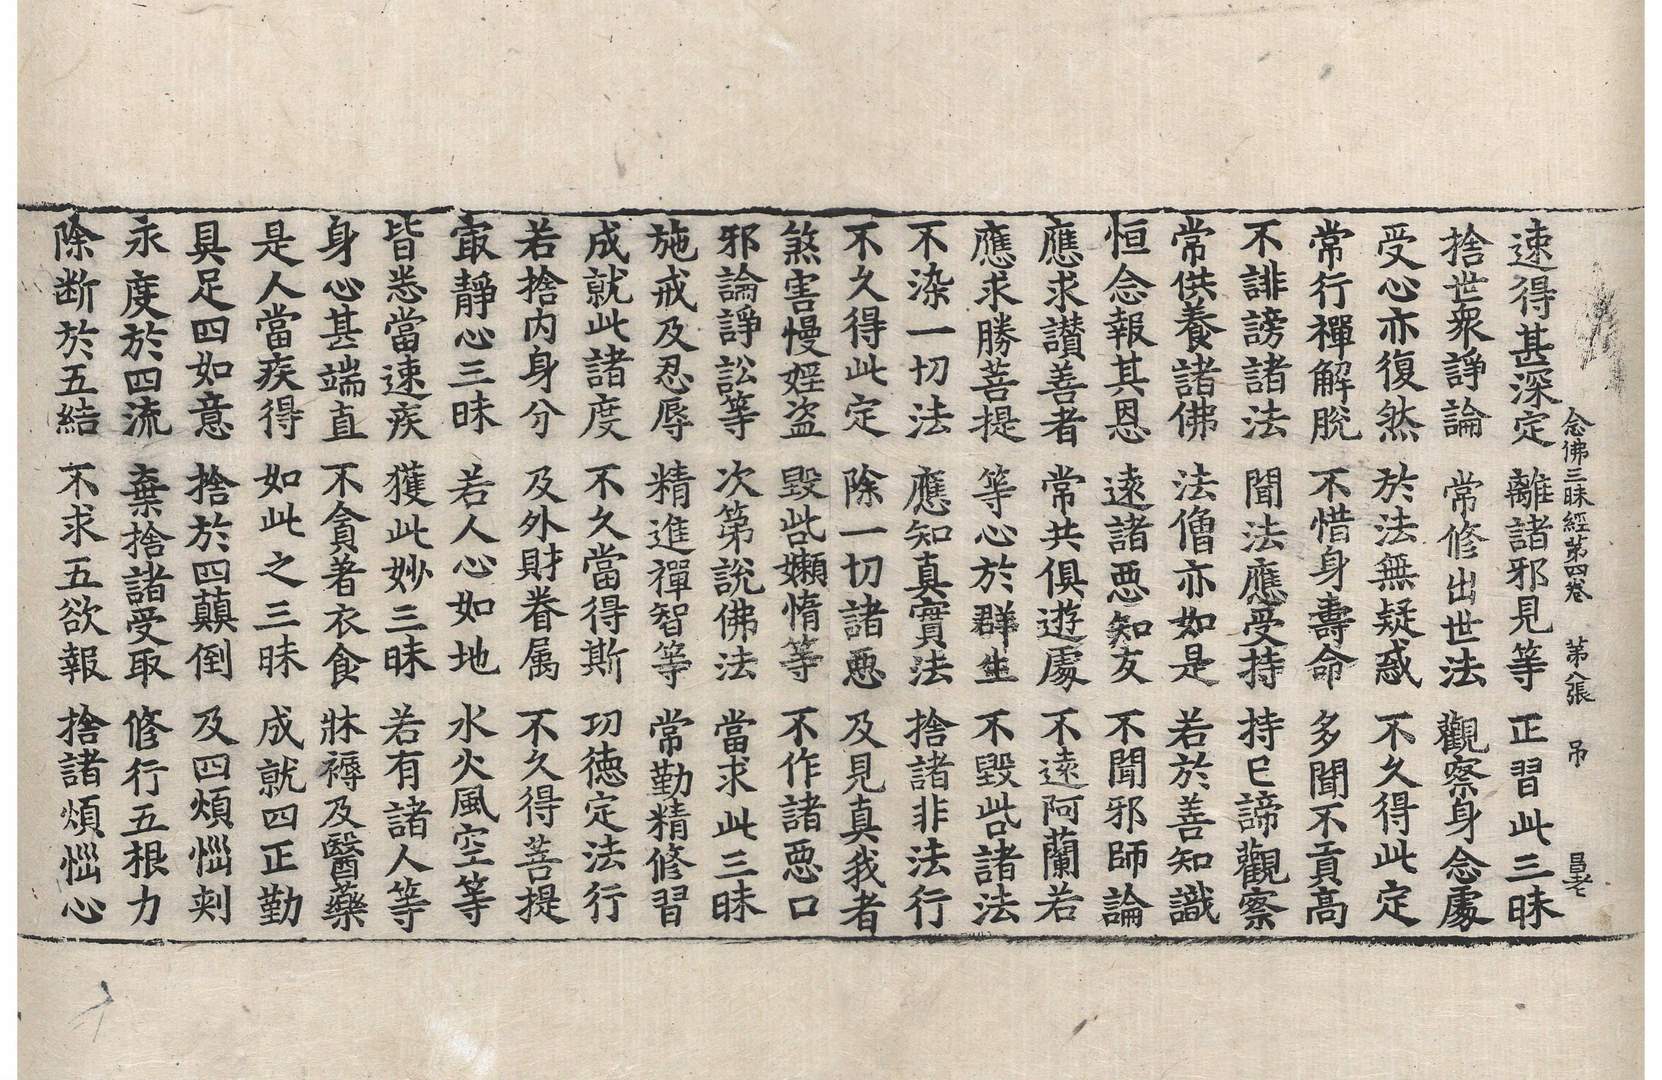 念佛三昧經第四卷 第八張 吊
速得甚深定 離諸邪見等 正習此三昧
捨世衆諍論 常修出世法 觀察身念處
受心亦復然 於法無疑惑 不久得此定
常行禪解脫 不惜身壽命 多聞不貢高
不誹謗諸法 聞法應受持 持已諦觀察
常供養諸佛 法僧亦如是 若於善知識
恒念報其恩 遠諸惡知友 不聞邪師論
應求讃善者 常共俱遊處 不遠阿蘭若
應求勝菩提 等心於群生 不毀呰諸法
不染一切法 應知真實法 捨諸非法行
不久得此定 除一切諸惡 及見真我者
煞害慢婬盗 毀呰嬾惰等 不作諸惡口
邪論諍訟等 次第說佛法 當求此三昧
施戒及忍辱 精進禪智等 常勤精修習
成就此諸度 不久當得斯 功徳定法行
若捨内身分 及外財眷属 不久得菩提
㝡靜心三昧 若人心如地 水火風空等
皆悉當速疾 獲此妙三昧 若有諸人等
身心甚端直 不貪著衣食 牀褥及醫藥
是人當疾得 如此之三昧 成就四正勤
具足四如意 捨於四顛倒 及四煩惱刺
永度於四流 棄捨諸受取 修行五根力
除断於五結 不求五欲報 捨諸煩惱心